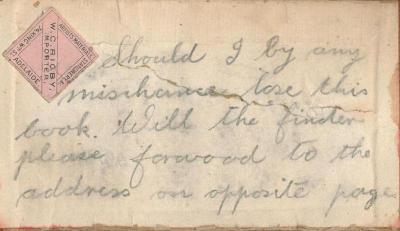 W.C. RIGBY,
IMPORTER
ADELAIDE
Should I by any
mischance lose this
book. Will the finder
please forwood to the
address on opposite page